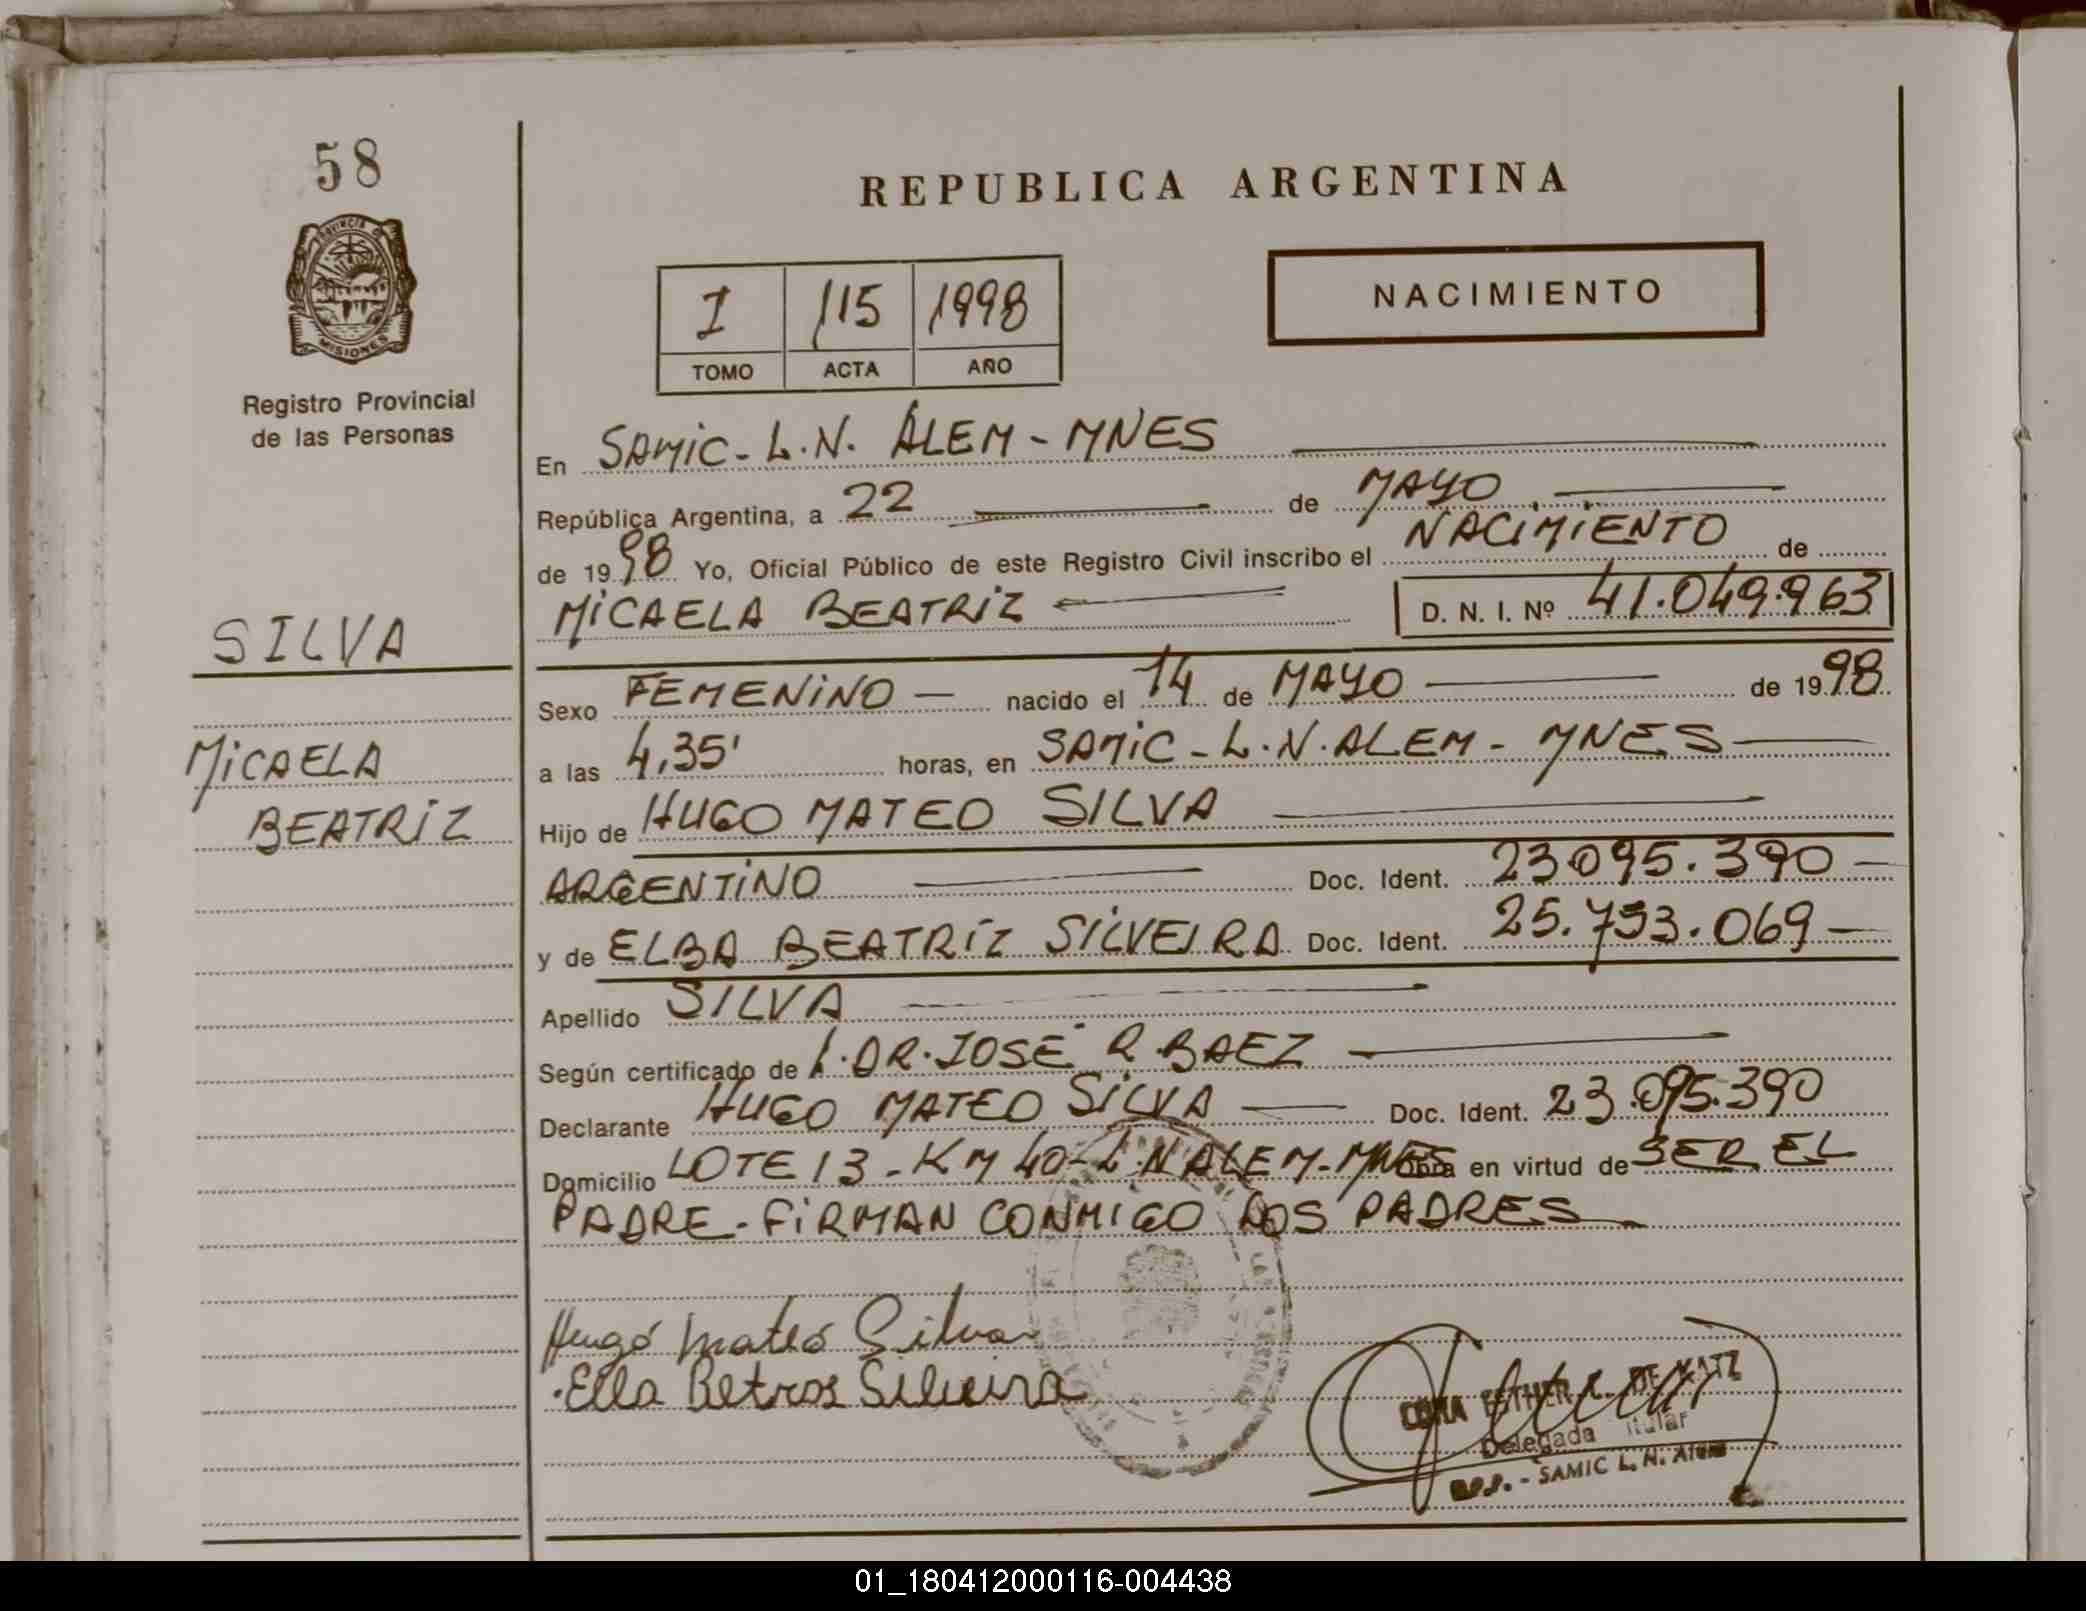 58
Provincia de
MISIONES
Registro Provincial
de las Personas
SILVA
MICAELA
BEATRIZ
REPUBLICA ARGENTINA
I 115 1998
TOMO ACTA AÑO
NACIMIENTO
En SAMIC - L.N. ALEM - MNES
República Argentina, a 22 de MAYO
de 1998 Yo, Oficial Público de este Registro Civil inscribo el NACIMIENTO de
MICAELA BEATRIZ D. N. I. Nº 41.049.963
Sexo FEMENINO nacido el 14 de MAYO de 1998
a las 4,35' horas, en SAMIC - L.N. ALEM - MNES
Hijo de HUGO MATEO SILVA
ARGENTINO Doc. Ident. 23.095.390
y de ELBA BEATRIZ SILVEIRA Doc. Ident. 25.793.069
Apellido SILVA
Según certificado de DR. JOSÉ R. BAEZ
Declarante HUGO MATEO SILVA Doc. Ident. 23.095.390
Domicilio LOTE 13 - KM 40 - L.N ALEM - MNES Obra en virtud de SER EL
PADRE - FIRMAN CONMIGO LOS PADRES
Hugo Mateo Silva
Silveira
ESTHER DE KATZ
Delegada Titular
SAMIC L. N. Alem
01_180412000116-004438